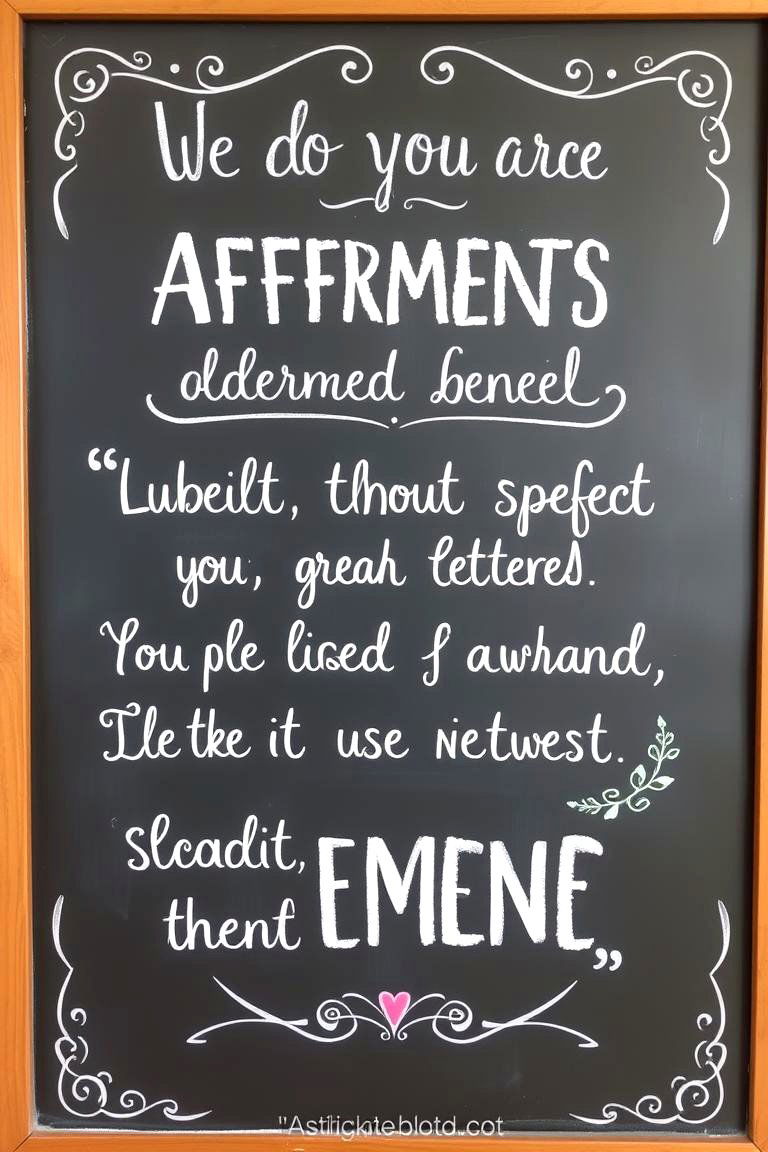 We do you arce
AFFFRMENTS
oldermed beneel
“Lubeilt, thout spefect
you, greah lettered.
You ple lised f awhand,
Ile tke it use netwest.
slcadit,
thent EMENE„
"Astlighteblotd.cot